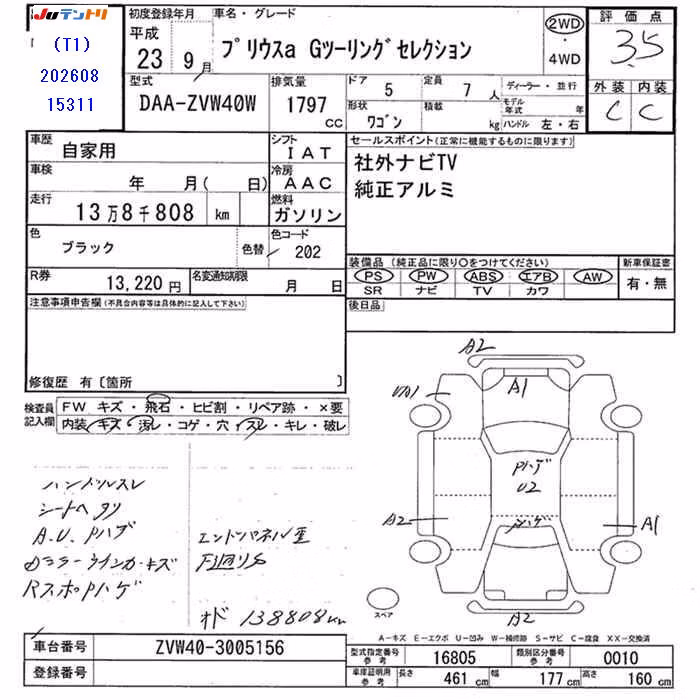 JUテントリ
(T1)
202608
15311
初度登録年月
平成
23 9月
車名・グレード
プリウスa Gツーリングセレクション
2WD
・
4WD
評価点
3.5
外装 内装
C C
型式
DAA-ZVW40W
排気量
1797 CC
ドア
5
定員
7 人
形状
ワゴン
積載
kg
ディーラー・並行
モデル年式 年
ハンドル 左・右
車歴
自家用
シフト
IAT
車検
年 月( 日)
冷房
AAC
走行
13万8千808 km
燃料
ガソリン
色
ブラック
色替
色コード
202
R券
13,220円
名変通知期限
月 日
セールスポイント(正常に機能するものに限ります)
社外ナビTV
純正アルミ
装備品(純正品に限り○をつけてください)
PS PW ABS エアB AW
SR ナビ TV カワ
新車保証書
有・無
後日品
注意事項申告欄(不具合内容等は具体的に記入して下さい)
修復歴 有〔箇所 〕
検査員記入欄
FW キズ・飛石・ヒビ割・リペア跡・×要
内装・キズ・汚レ・コゲ・穴・スレ・キレ・破レ
ハンドルスレ
シートヘタリ
A.U.Pハゲ
ドミラーウインカーキズ
RスポPハゲ
エンドパネル歪
オド 138808km
A2
A1
A2
A1
Pハゲ
U2
Pハゲ
A2
スペア
A-キズ E-エクボ U-凹み W-補修跡 S-サビ C-腐食 XX-交換済
車台番号
ZVW40-3005156
登録番号
型式指定番号 参考
16805
類別区分番号 参考
0010
車庫証明用 参考
長さ 461 cm 幅 177 cm 高さ 160 cm